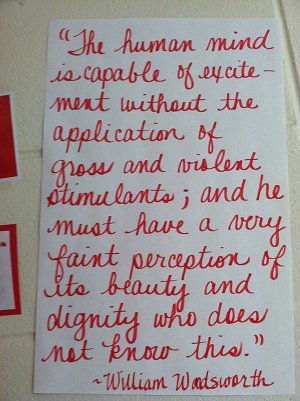 "The human mind
is capable of excite-
ment without the
application of
gross and violent
stimulants; and he
must have a very
faint perception of
its beauty and
dignity who does
not know this."
~William Wadsworth